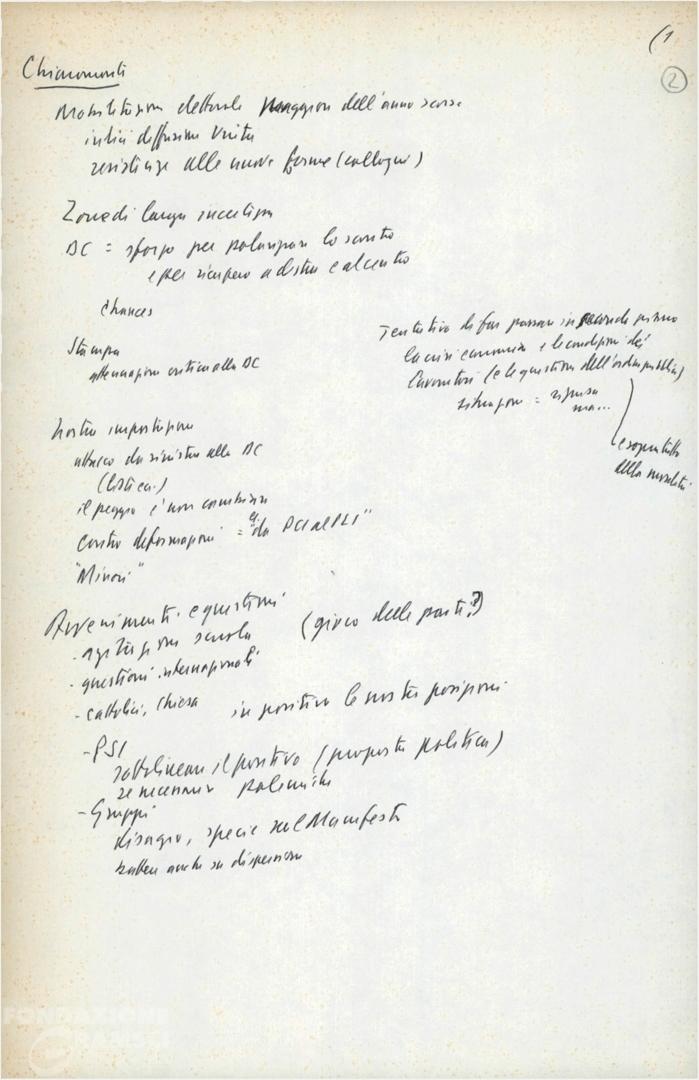 (1
2
Chiaromonte
Mobilitazione elettorale maggiore dell'anno scorso
indici diffusione Unità
resistenze alle nuove forme (colloqui)
Zone di larga incertezza
DC = sforzo per polarizzare lo scontro
e per recupero a destra e al centro
chances
Stampa
attenuazione critica alla DC
Tentativo di far passare in secondo piano
la crisi economica e le condizioni dei
lavoratori (e le questioni dell'ordine pubblico)
situazione = ripresa
ma...
e soprattutto
della moralità
Nostra impostazione
attacco da sinistra alla DC
il peggio è non cambiare
contro deformazioni = "da PCI al PLI"
"Minori"
Avvenimenti e questioni
- agitazioni scuola
(gioco delle parti?)
- questioni internazionali
- cattolici, chiesa
in positivo le nostre posizioni
- PSI
sottolineare il positivo (proposta politica)
se necessario polemiche
- Gruppi
disagio, specie sul Manifesto
battere anche su dispersione
FONDAZIONE